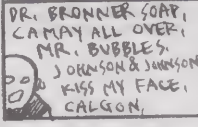 DR. BRONNER SOAP,
CAMAY ALL OVER,
MR. BUBBLES.
JOHNSON & JOHNSON
KISS MY FACE,
CALGON,